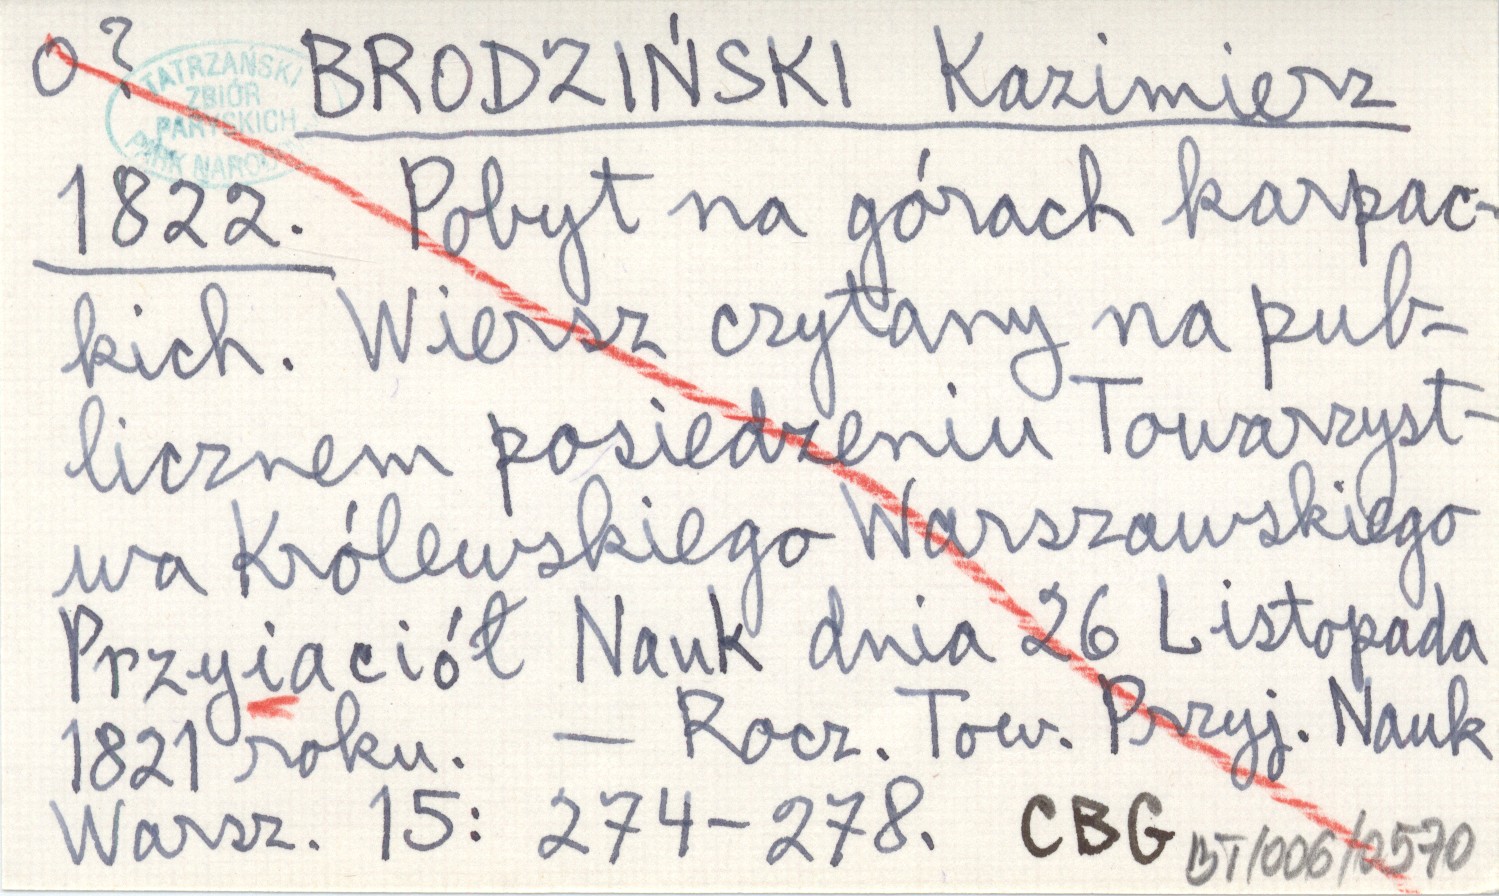 o?
TATRZAŃSKI
ZBIÓR
PARYSKICH
PARK NARODO
BRODZIŃSKI Kazimierz
1822. Pobyt na górach karpac-
kich. Wiersz czytany na pub-
licznem posiedzeniu Towarzyst-
wa Królewskiego Warszawskiego
Przyiaciół Nauk dnia 26 Listopada
1821 roku. — Rocz. Tow. Przyj. Nauk
Warsz. 15: 274-278. CBG
BT/006/2570